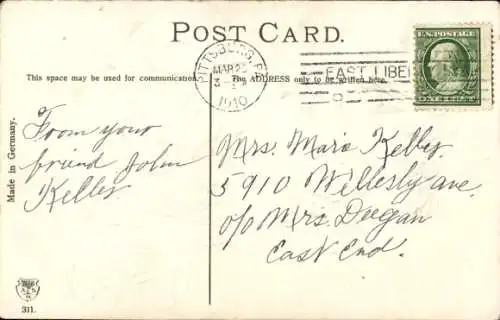 POST CARD.
U.S. POSTAGE
ONE CENT
PITTSBURG, PA.
MAR 2
1910
EAST LIBE
This space may be used for communication.
The ADDRESS only to be written here.
Made in Germany.
From your
friend John
Kelley
Mrs. Marie Kelley.
5910 Wellesly ave.
c/o Mrs. Deegan
East End.
311.